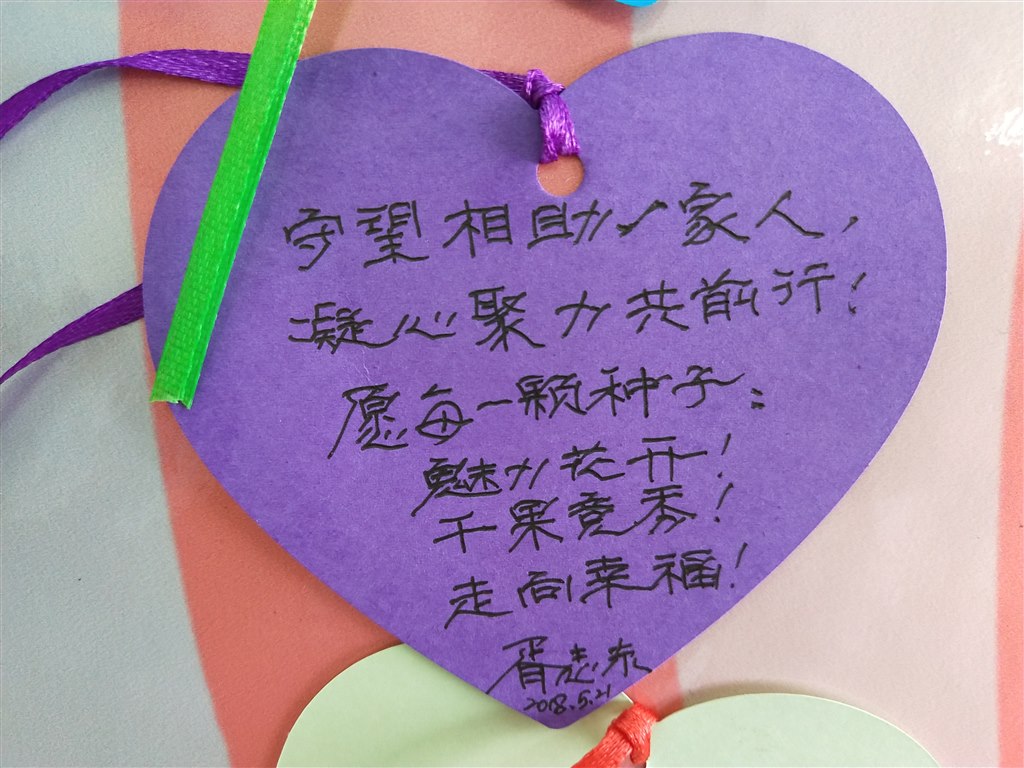 守望相助一家人，
凝心聚力共前行！
愿每一颗种子：
魅力花开！
千果竞秀！
走向幸福！
胥志东
2018.5.21